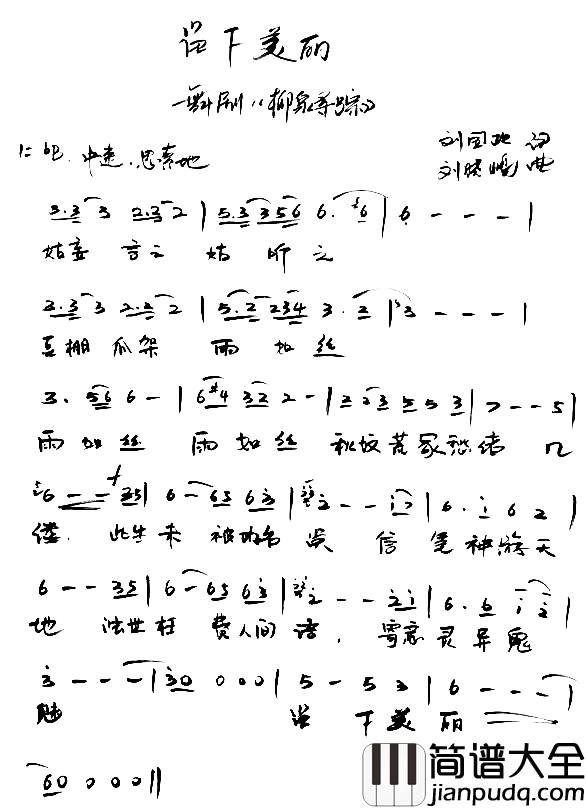 留下美丽
舞剧《柳泉寻踪》
1=bE 中速、思索地
刘国 词
刘晓 曲
3.3 3 2.3 2 | 5.3 3 5 6 6. 6 | 6 - - - |
姑妄言之 姑听之
3.3 3 2.2 2 | 5.2 2 3 4 3. 2 | 3 - - - |
豆棚瓜架 雨如丝
3. 5 6 6 - | 6 #4 3 2 2 - | 2 2 3 5 5 3 | 7 - - 5 |
雨如丝 雨如丝 秋坟荒冢愁绪 几
6 - - 3 5 | 6 - 6 5 6 3 | 2 - - i 7 | 6. i 6 2 |
缕 此生未被功名误 信笔神游天
6 - - 3 5 | 6 - 6 5 6 3 | 2 - - 2 i | 6. 6 i 2 |
地 浊世枉费人间语, 寄意灵异鬼
3 - - - | 3 0 0 0 0 | 5 - 5 3 | 6 - - - |
魅 留下美丽
6 0 0 0 0 ||
简谱大全
jianpudq.com